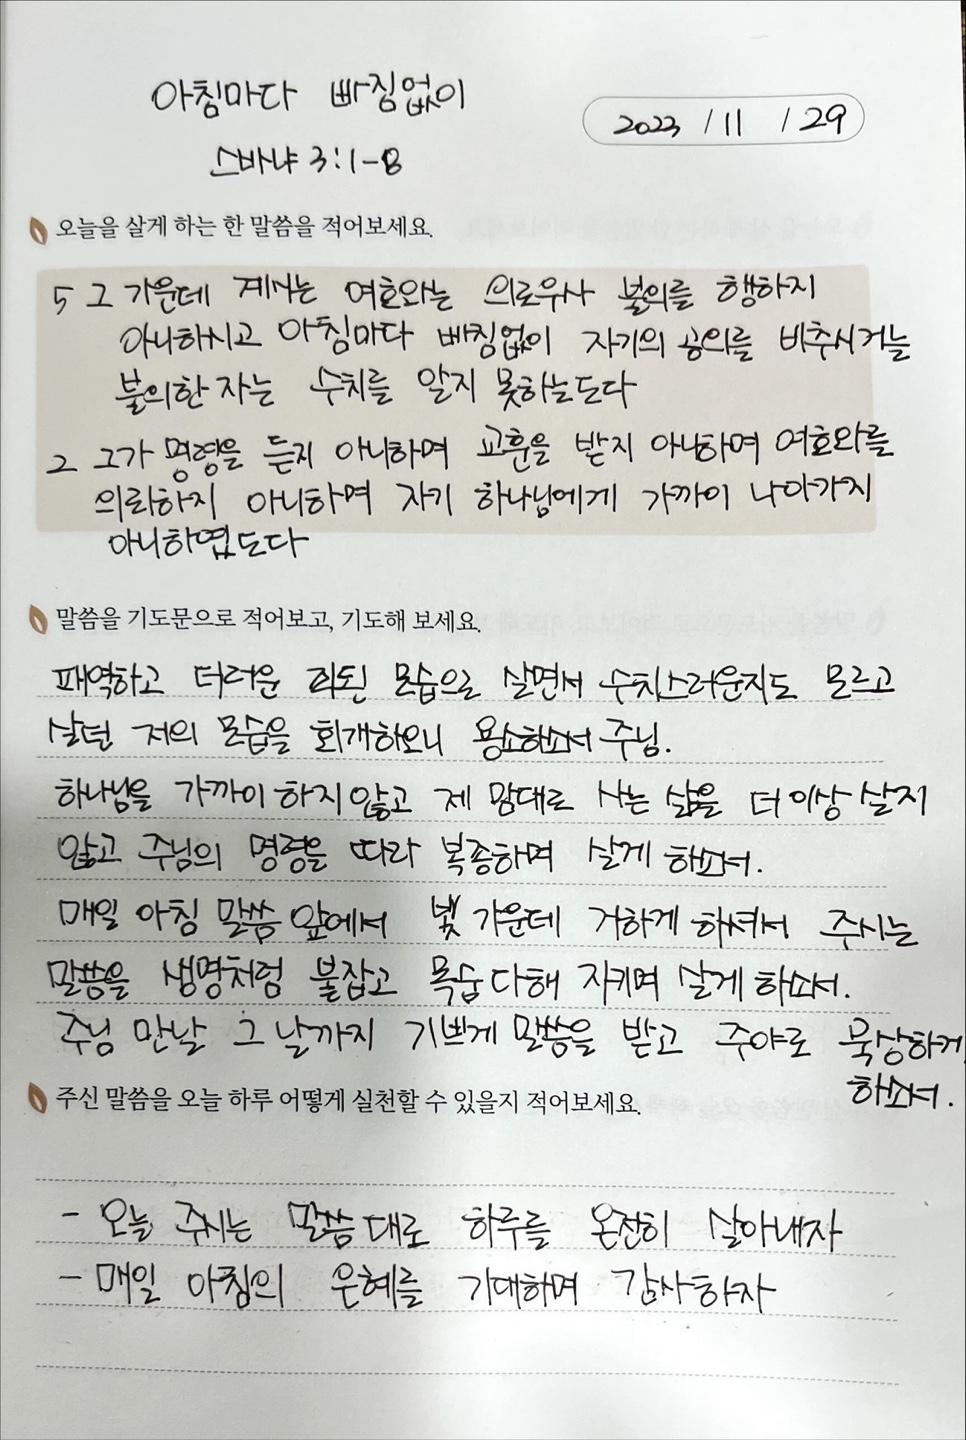 아침마다 빠짐없이
2023 / 11 / 29
스바냐 3:1-8
오늘을 살게 하는 한 말씀을 적어보세요.
5 그 가운데 계시는 여호와는 의로우사 불의를 행하지
아니하시고 아침마다 빠짐없이 자기의 공의를 비추시거늘
불의한 자는 수치를 알지 못하는도다
2 그가 명령을 듣지 아니하며 교훈을 받지 아니하며 여호와를
의뢰하지 아니하며 자기 하나님에게 가까이 나아가지
아니하였도다
말씀을 기도문으로 적어보고, 기도해 보세요.
패역하고 더러운 죄된 모습으로 살면서 수치스러운지도 모르고
살던 저의 모습을 회개하오니 용서하소서 주님.
하나님을 가까이 하지 않고 제 맘대로 사는 삶을 더 이상 살지
않고 주님의 명령을 따라 복종하며 살게 하소서.
매일 아침 말씀 앞에서 빛 가운데 거하게 하셔서 주시는
말씀을 생명처럼 붙잡고 목숨 다해 지키며 살게 하소서.
주님 만날 그 날까지 기쁘게 말씀을 받고 주야로 묵상하게
하소서.
주신 말씀을 오늘 하루 어떻게 실천할 수 있을지 적어보세요.
- 오늘 주시는 말씀대로 하루를 온전히 살아내자
- 매일 아침의 은혜를 기대하며 감사하자